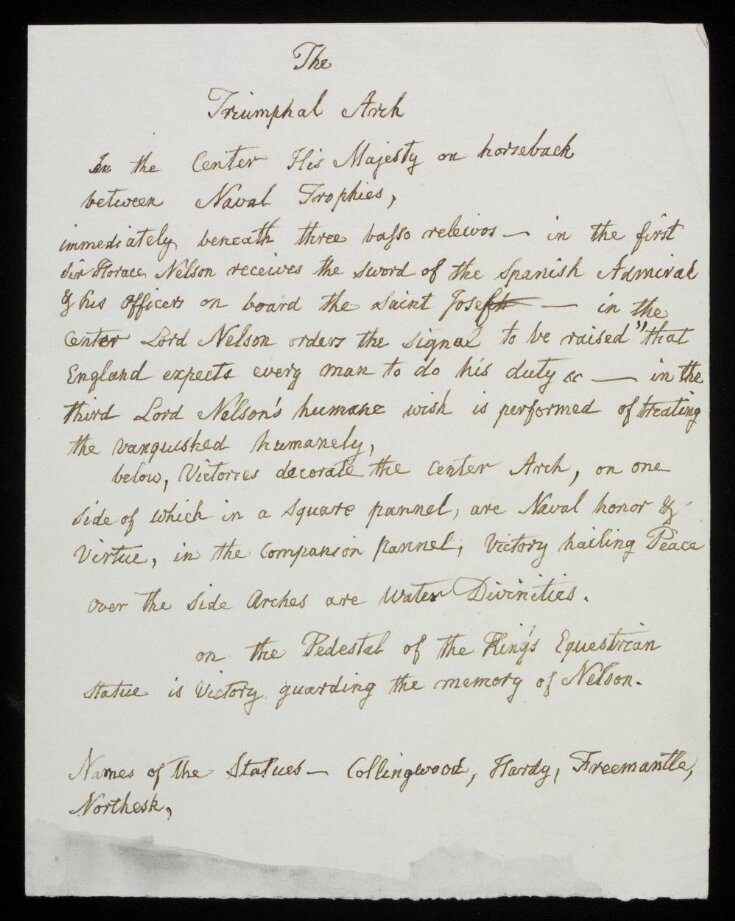 The
Triumphal Arch
In the Center His Majesty on horseback
between Naval Trophies,
immediately beneath three basso releivos — in the first
Sir Horace Nelson receives the sword of the Spanish Admiral
& his Officers on board the Saint Joseph — in the
Center Lord Nelson orders the signal to be raised "that
England expects every man to do his duty &c — in the
third Lord Nelson's humane wish is performed of treating
the vanquished humanely,
below, Victories decorate the Center Arch, on one
side of which in a square pannel, are Naval honor &
Virtue, in the Companion pannel, Victory hailing Peace
over the side Arches are Water Divinities.
on the Pedestal of the King's Equestrian
statue is Victory guarding the memory of Nelson.
Names of the Statues — Collingwood, Hardy, Freemantle,
Northesk,